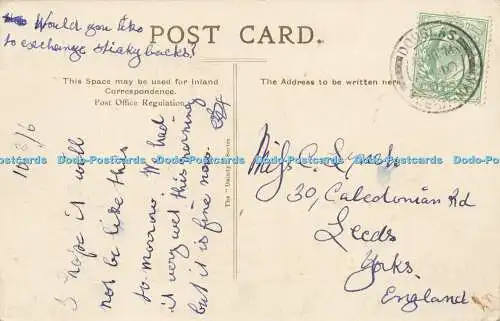 Would you like
to exchange stickybacks!
POST CARD.
This Space may be used for Inland
Correspondence.
Post Office Regulation.
The Address to be written here
DOUGLAS
I hope it will
not be like this
to-morrow. We had
it very wet this morning
but it is fine now.
The "Dainty" Series
Miss C.
30, Caledonian Rd
Leeds
Yorks.
England
Dodo-Postcards Dodo-Postcards Dodo-Postcards Dodo-Postcards Dodo-Postcards Dodo-Postcards